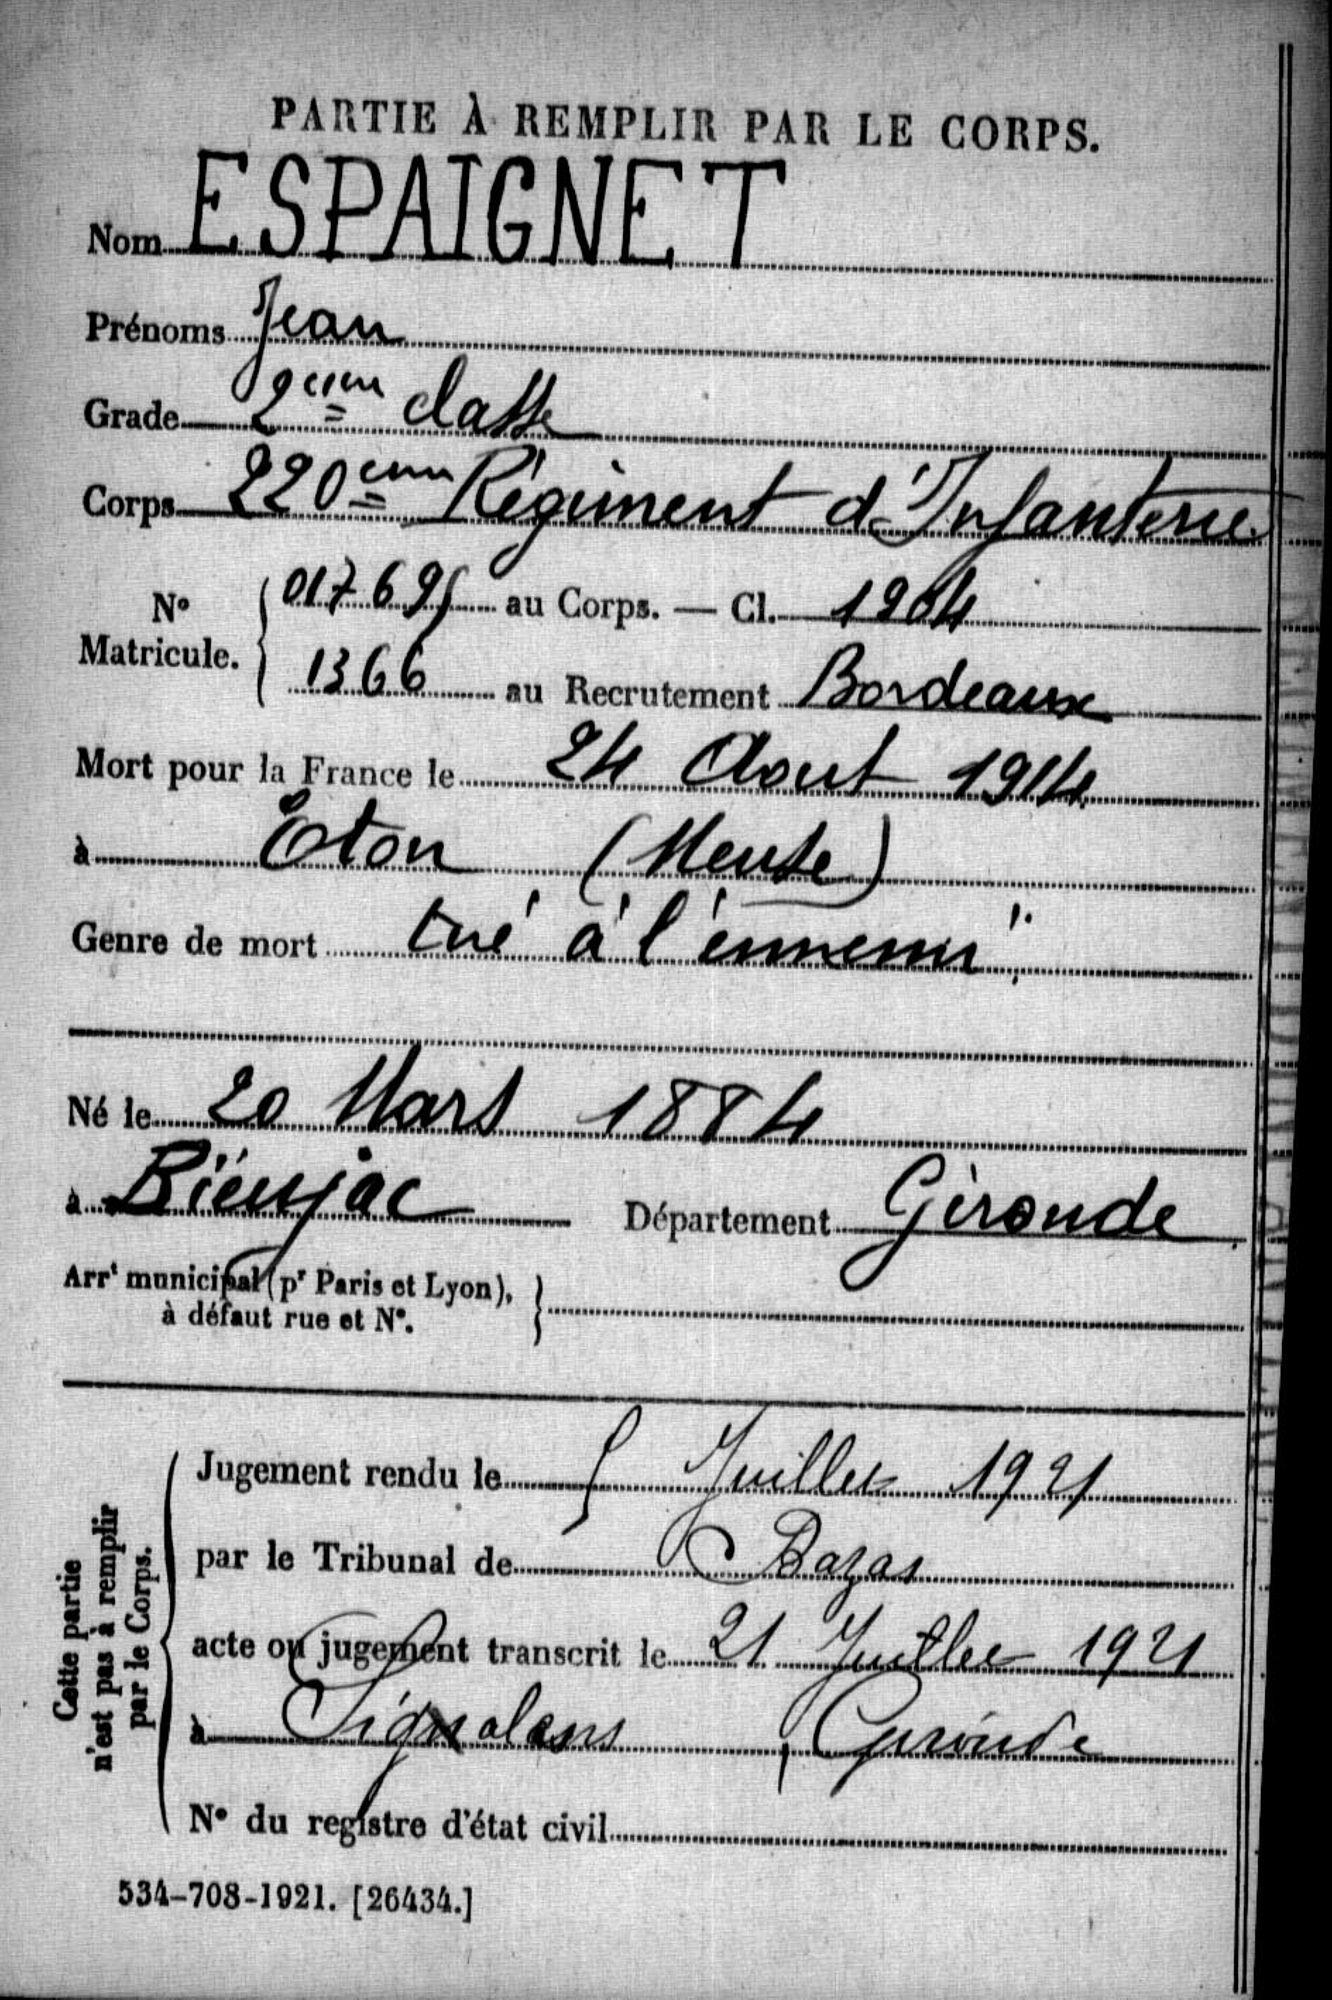 PARTIE À REMPLIR PAR LE CORPS.
Nom ESPAIGNET
Prénoms Jean
Grade 2eme classe
Corps 220eme Régiment d'Infanterie
No Matricule. 017695 au Corps. — Cl. 1904
1366 au Recrutement Bordeaux
Mort pour la France le 24 Aout 1914
à Eton (Meuse)
Genre de mort tué à l'ennemi"
Né le 20 Mars 1884
à Bieujac Département Gironde
Arrt municipal (pr Paris et Lyon),
à défaut rue et No.
Cette partie
n'est pas à remplir
par le Corps.
Jugement rendu le 5 Juillet 1921
par le Tribunal de Bazas
acte ou jugement transcrit le 21 Juillet 1921
à Sigalens, Gironde
No du registre d'état civil
534-708-1921. [26434.]